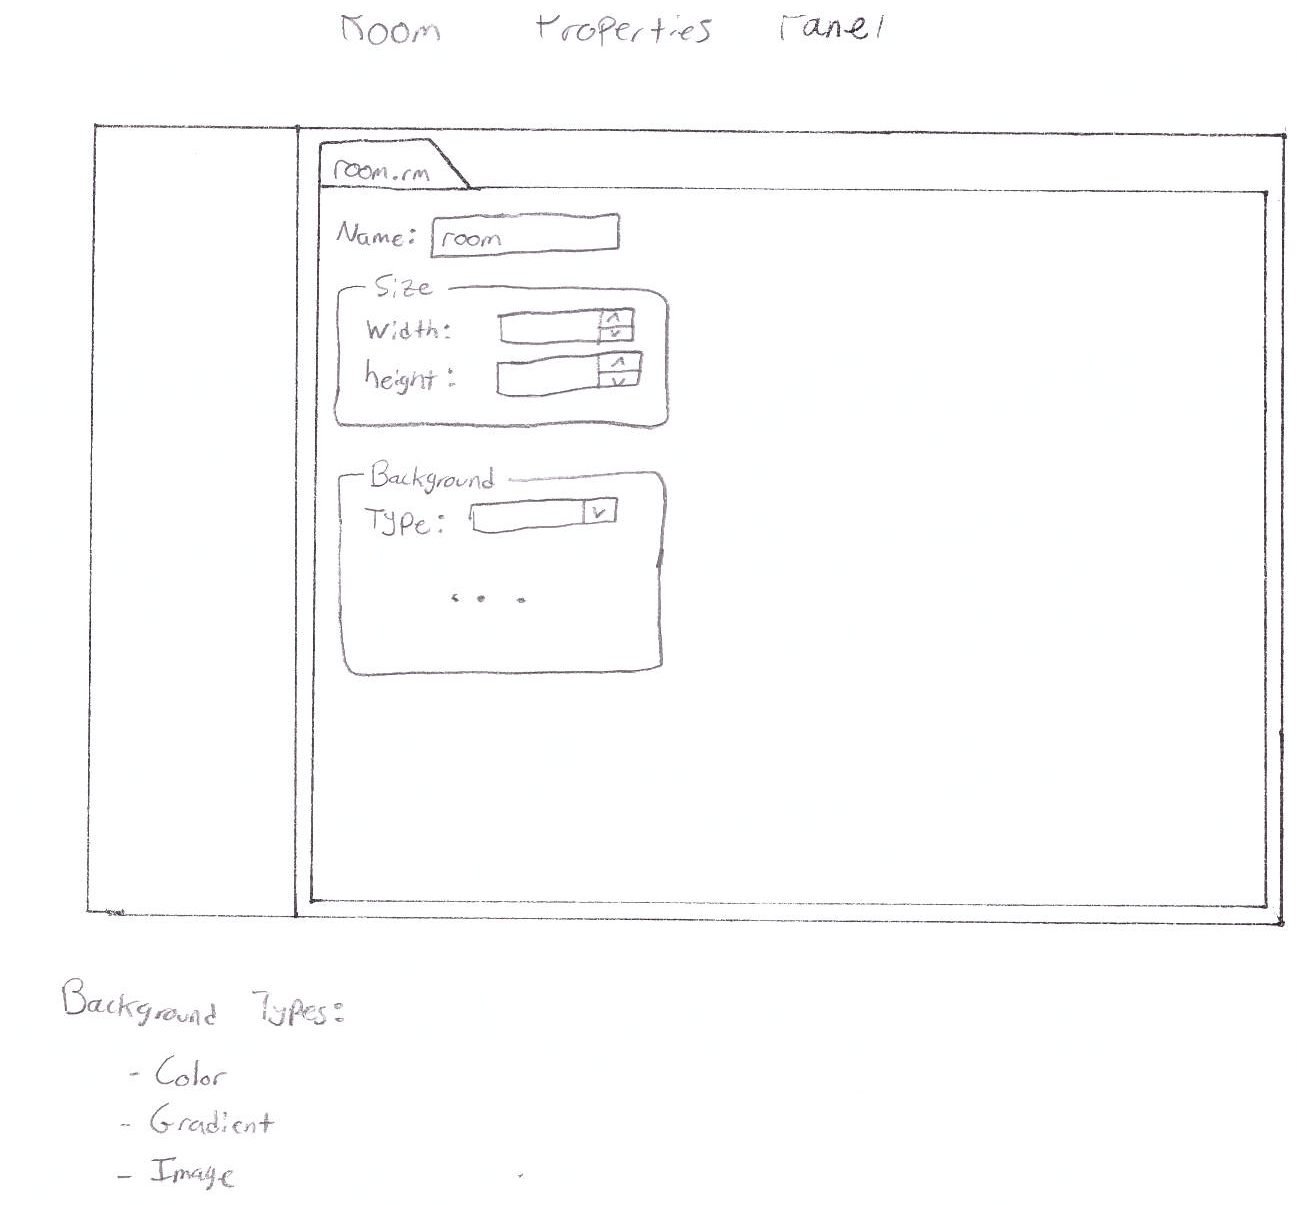 Room Properties Panel
room.rm
Name: room
Size
Width:
height:
Background
Type:
...
Background Types:
- Color
- Gradient
- Image